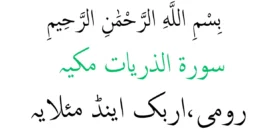 بِسْمِ اللَّهِ الرَّحْمَٰنِ الرَّحِيمِ
سورة الذريات مكيہ
رومی،اربک اینڈ مئلایہ